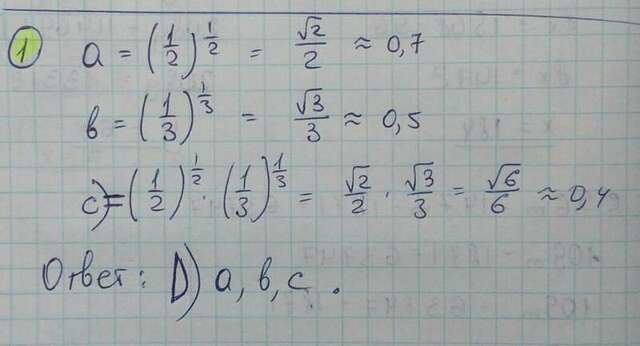 1 a = (1/2)^(1/2) = √2/2 ≈ 0,7
b = (1/3)^(1/3) = √3/3 ≈ 0,5
c) = (1/2)^(1/2) · (1/3)^(1/3) = √2/2 · √3/3 = √6/6 ≈ 0,4
Ответ: D) a, b, c .